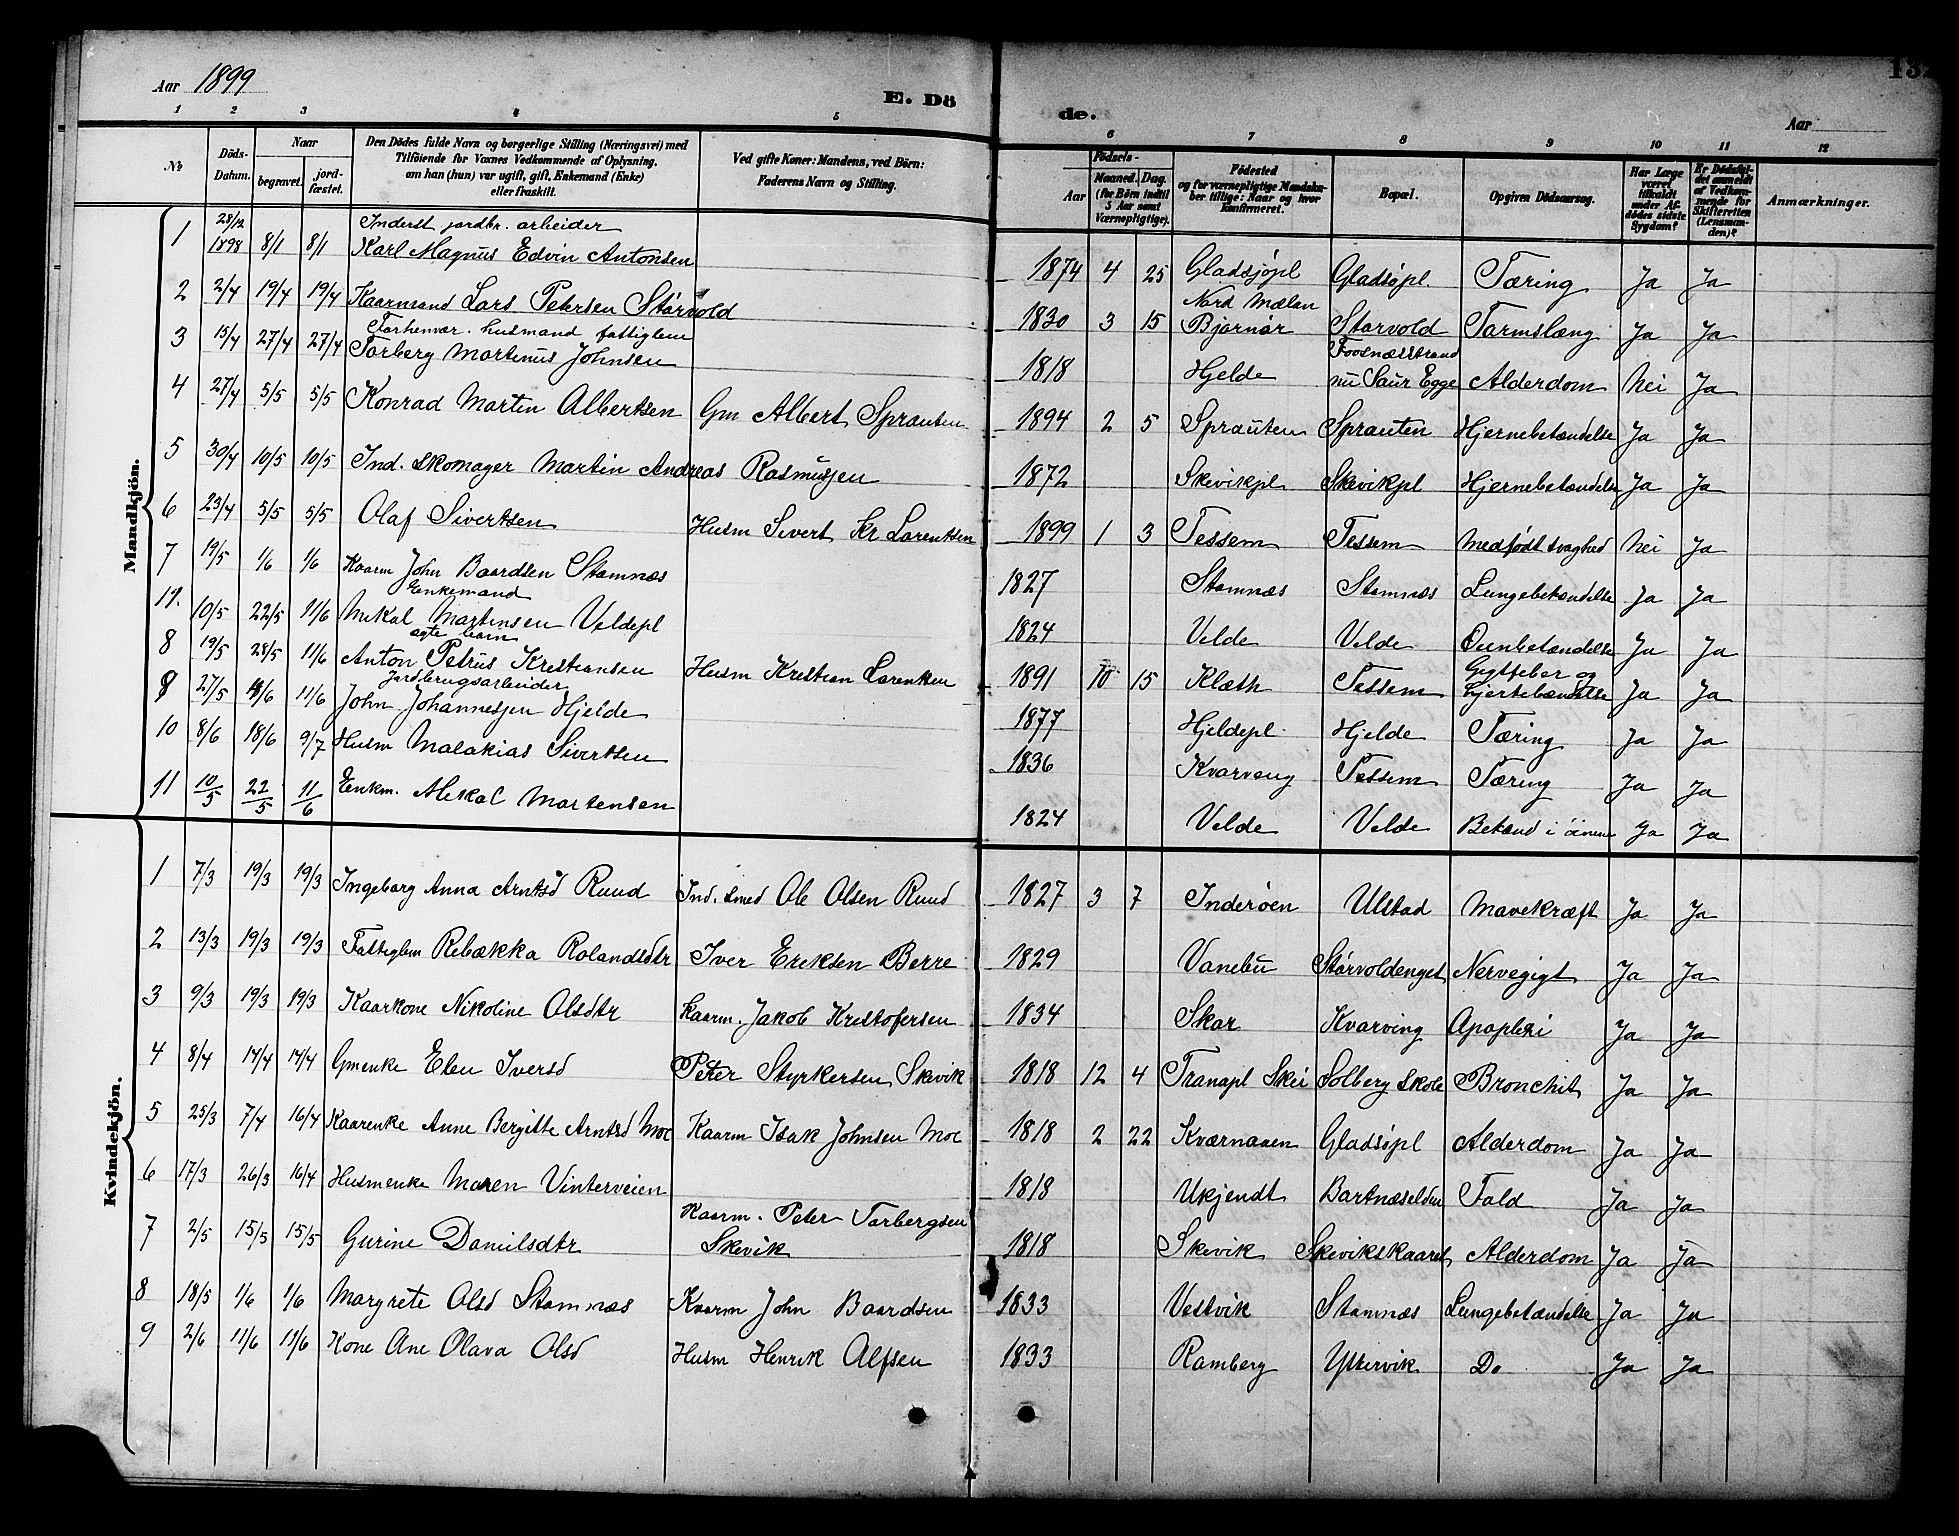 Aar 1899
E. Dö
de.
Aar
132
1 2 3 4 5 6 7 8 9 10 11 12
№
Döds-Datum.
Naar
begravet.
jord-fæstet.
Den Dödes fulde Navn og borgerlige Stilling (Næringsvei) med
Tilföiende for Voxnes Vedkommende af Oplysning,
om han (hun) var ugift, gift, Enkemand (Enke)
eller fraskilt.
Ved gifte Koner: Mandens, ved Börn:
Faderens Navn og Stilling.
Födsels-
Aar
Maaned. Dag.
(for Börn indtil
5 Aar samt
Værnepligtige).
Födested
og for værnepligtige Mandska-
ber tillige: Naar og hvor
konfirmeret.
Bopæl.
Opgiven Dödsaarsag.
Har Læge
været
tilkaldt
under Af-
dödes sidste
Sygdom?
Er Dödsfal-
det anmeldt
af Vedkom-
mende for
Skifteretten
(Lensman-
den)?
Anmærkninger.
Mandkjön.
1 28/12 1898 8/1 8/1 Inderst jordbr. arbeider
Karl Magnus Edvin Antonsen 1874 4 25 Gladsjöpl Gladsöpl. Tæring Ja Ja
2 2/4 19/4 19/4 Kaarmand Lars Petersen Størvold 1830 3 15 Nord Mælan
Bjørnør Størvold Tarmslæng Ja Ja
3 15/4 27/4 27/4 Forhenvær. husmand fattiglem
Torberg Martinus Johnsen 1818 Hjelde Fosnæsstrand
nu Saur Egge Alderdom Nei Ja
4 27/4 5/5 5/5 Konrad Martin Albertsen Gm Albert Sprauten 1894 2 5 Sprauten Sprauten Hjernebetændelse Ja Ja
5 30/4 10/5 10/5 Ind. skomager Martin Andreas Rasmussen 1872 Skevikpl Skevikpl Hjernebetændelse Ja Ja
6 23/4 5/5 5/5 Olaf Sivertsen Husm Sivert Kr Larentsen 1899 1 3 Tessem Tessem Medfødt svaghed Nei Ja
7 19/5 1/6 1/6 Kaarm John Baardsen Stamnæs 1827 Stamnæs Stamnæs Lungebetændelse Ja Ja
11. 10/5 22/5 11/6 Enkemand
Mikal Martinsen Veldepl 1824 Velde Velde Øienbetændelse Ja Ja
8 19/5 28/5 11/6 ægte barn
Anton Petrus Kristiansen Husm Kristian Larentsen 1891 10 15 Klæth Tessem Gigtfeber og
hjertebetændelse Ja Ja
9 27/5 18/6 11/6 Jordbrugsarbeider
John Johannessen Hjelde 1877 Hjeldepl. Hjelde Tæring Ja Ja
10 8/6 18/6 9/7 Husm Malakias Sivertsen 1836 Kvarveng Tessem Tæring Ja Ja
11 10/5 22/5 11/6 Enkm. Mekal Martensen 1824 Velde Velde Betænd i øinene Ja Ja
Kvindekjön.
1 7/3 19/3 19/3 Ingeborg Anna Arntsd Ruud Ind. smed Ole Olsen Ruud 1827 3 7 Inderøen Ulstad Mavekræft Ja Ja
2 13/3 19/3 19/3 Fattiglem Rebækka Rolandsdtr Iver Eriksen Berre 1829 Vanebu Størvoldenget Nervegigt Ja Ja
3 9/3 19/3 19/3 Kaarkone Nikoline Olsdtr Kaarm. Jakob Kristofersen 1834 Skar Kvarving Apoplexi Ja Ja
4 8/4 14/4 14/4 Gmenke Elen Iversd Peter Styrkersen Skevik 1818 12 4 Tranapl Skei Solberg Skole Bronchit Ja Ja
5 25/3 7/4 16/4 Kaarenke Anne Bergitte Arntsd Moe Kaarm Isak Johnsen Moe 1818 2 22 Kværnaaen Gladsøpl Alderdom Ja Ja
6 17/3 26/3 16/4 Husmenke Maren Vinterveien 1818 Ukjendt Bartnæselden Fald Ja Ja
7 2/5 15/5 15/5 Gurine Danielsdtr Kaarm. Peter Torbergsen
Skevik 1818 Skevik Skevikskaaret Alderdom Ja Ja
8 18/5 1/6 1/6 Margrete Olsd Stamnæs Kaarm John Baardsen 1833 Vestvik Stamnæs Lungebetændelse Ja Ja
9 2/6 11/6 11/6 Kone Ane Olava Olsd Husm Henrik Alfsen 1833 Ramberg Yttervik Do Ja Ja